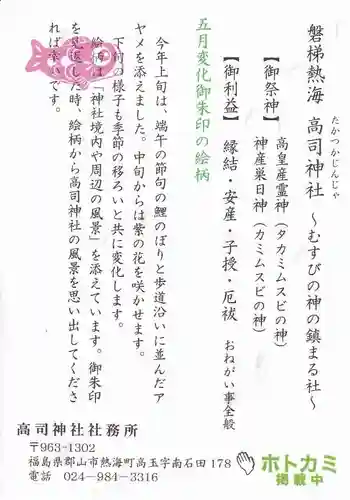 磐梯熱海 高司神社 ～むすびの神の鎮まる社～
たかつかじんじゃ
【御祭神】
高皇産霊神（タカミムスビの神）
神産巣日神（カミムスビの神）
【御利益】 縁結・安産・子授・厄祓 おねがい事全般
五月変化御朱印の絵柄
今年上旬は、端午の節句の鯉のぼりと歩道沿いに並んだア
ヤメを添えました。中旬からは紫の花を咲かせます。
下旬の様子も季節の移ろいと共に変化します。
絵柄は「神社境内や周辺の風景」を添えています。御朱印
を見返した時、絵柄から高司神社の風景を思い出してくださ
れば幸いです。
高司神社社務所
〒963-1302
福島県郡山市熱海町高玉字南石田 178
電話 024-984-3316
ホトカミ
掲載中